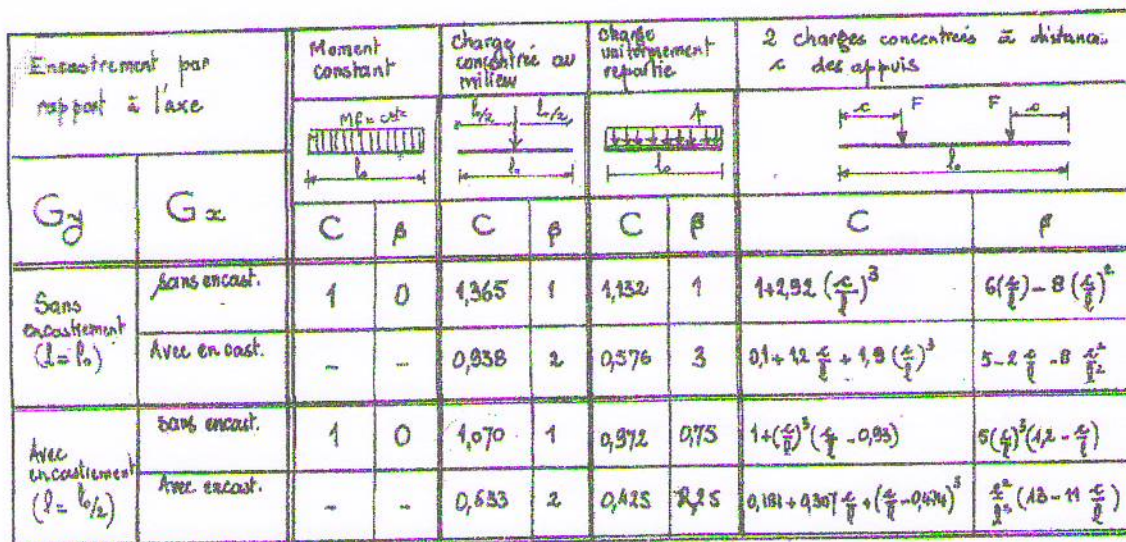 Encastrement par
rapport à l'axe
Moment
constant
Charge
concentrée au
milieu
charge
uniformement
repartie
2 charges concentrées à distance
c des appuis
Mf = cste
l₀
l₀/2 l₀/2
l₀
p
l₀
c F F c
l₀
Gy Gx C β C β C β C β
Sans
encastrement
(l = l₀)
Sans encast. 1 0 1,365 1 1,132 1 1+2,92 (c/l)³ 6(c/l) - 8 (c/l)²
Avec encast. - - 0,938 2 0,576 3 0,1 + 1,2 c/l + 1,9 (c/l)³ 5 - 2 c/l - 8 c²/l²
Avec
encastrement
(l = l₀/2)
Sans encast. 1 0 1,070 1 0,972 0,75 1+(c/l)³(c/l - 0,93) 5(c/l)³(1,2 - c/l)
Avec encast. - - 0,633 2 0,425 2,25 0,181 + 0,307 c/l + (c/l - 0,474)³ c²/l² (13 - 11 c/l)